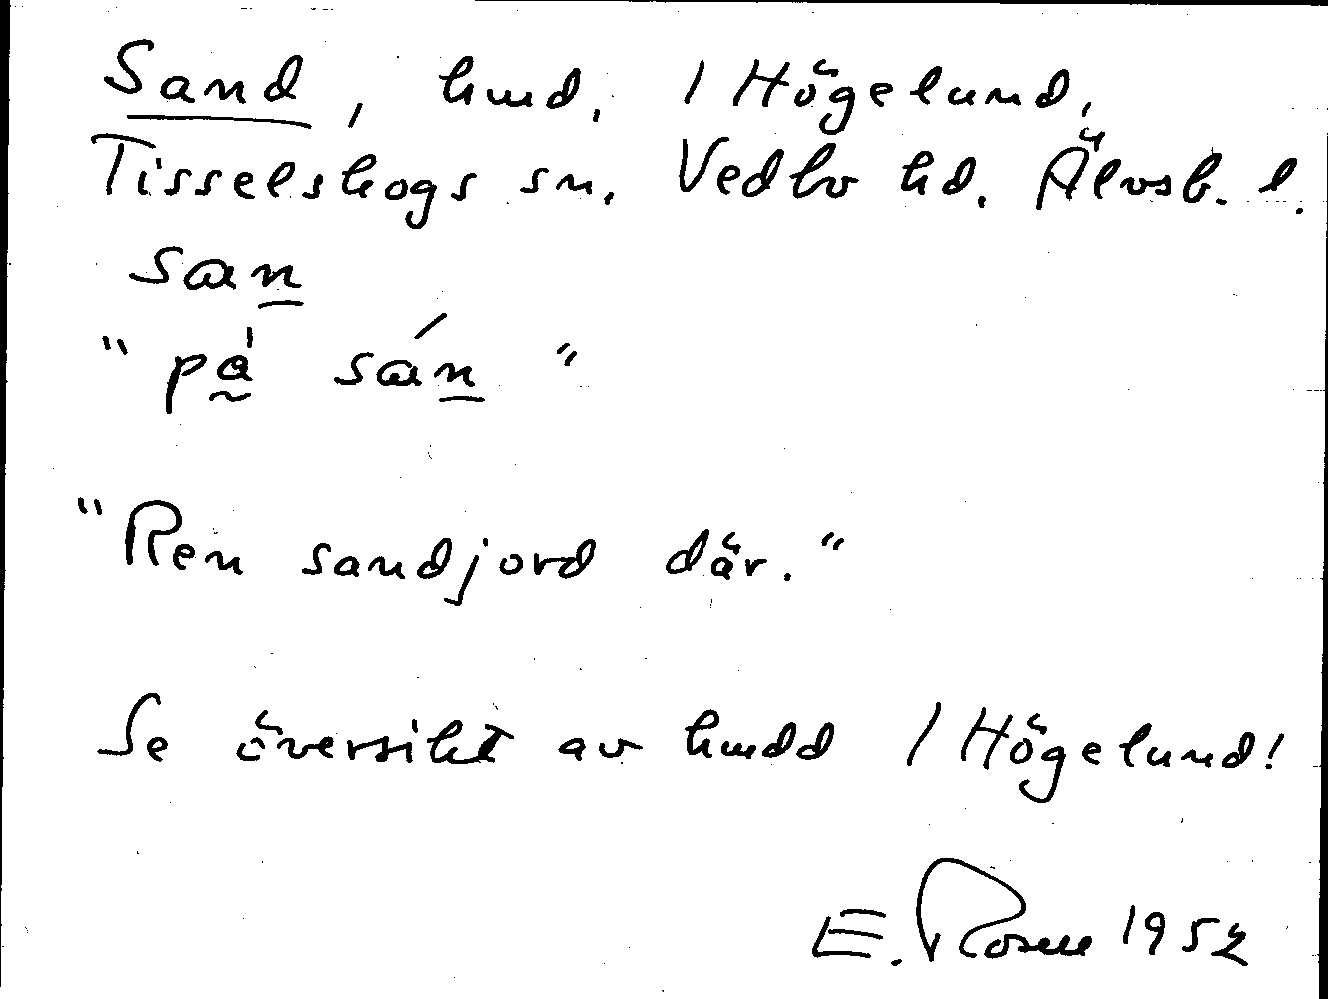 Sand, hmd, 1 Högelund,
Tisselskogs sn. Vedbo hd. Älvsb. l.
san
"på sán"
"Ren sandjord där."
Se översikt av hmdd 1 Högelund!
E. Rosell 1952